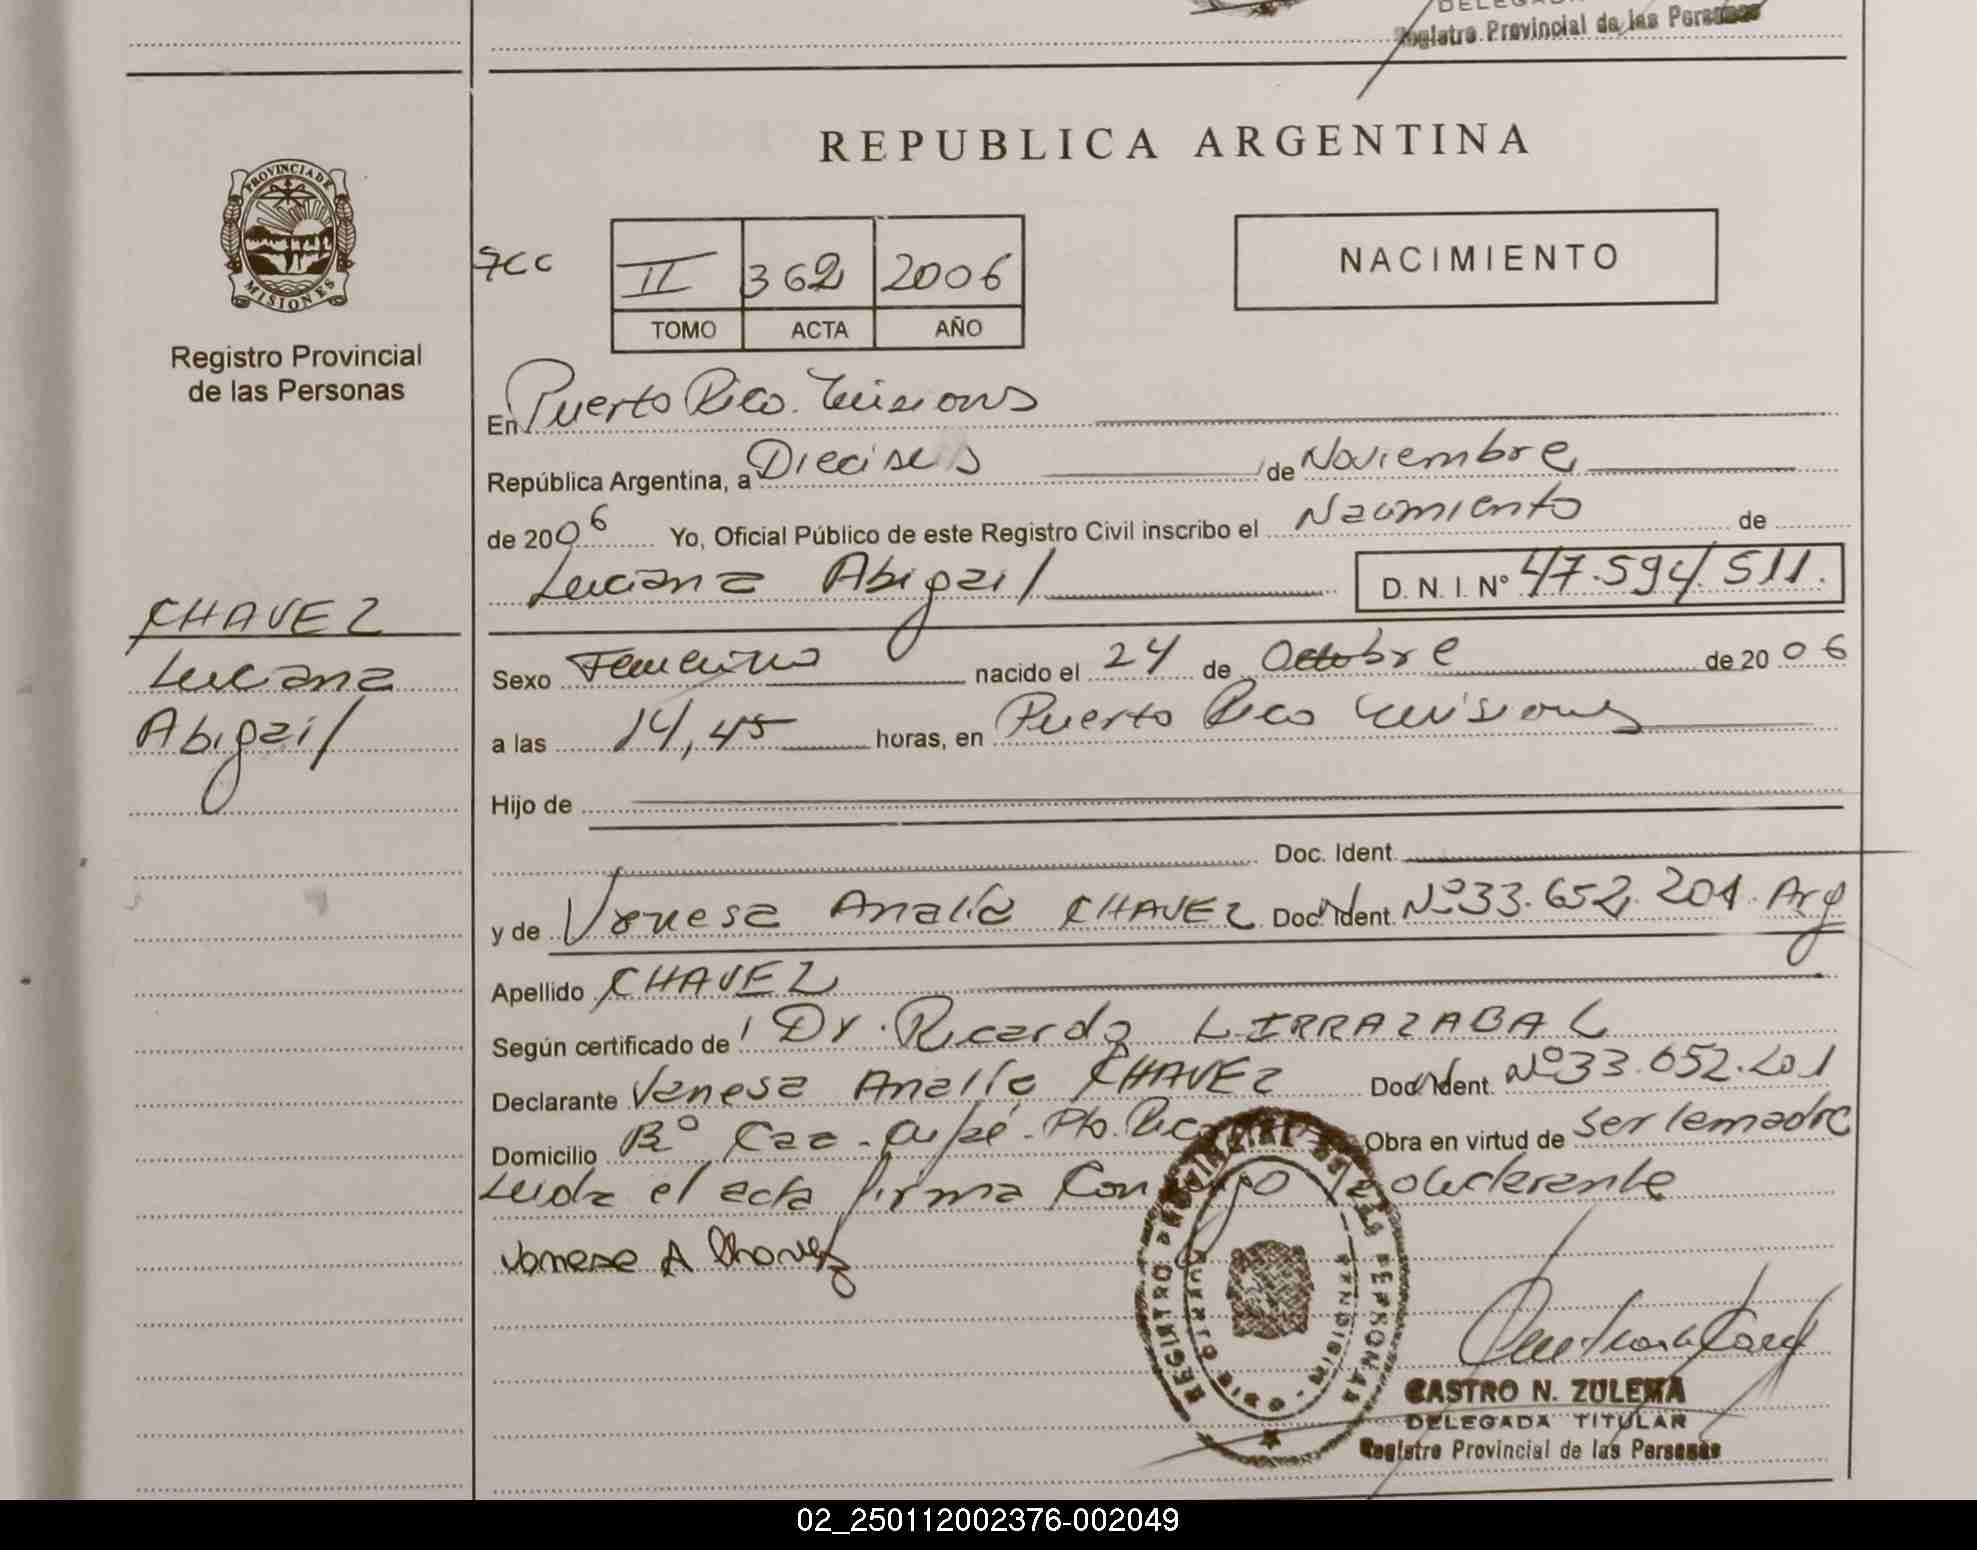 Registro Provincial de las Personas
REPUBLICA ARGENTINA
PROVINCIA DE
MISIONES
Registro Provincial
de las Personas
II 362 2006
TOMO ACTA AÑO
NACIMIENTO
En Puerto Rico. Misiones
República Argentina, a Dieciseis de Noviembre
de 2006 Yo, Oficial Público de este Registro Civil inscribo el Nacimiento de
Luciana Abigail D. N. I. Nº 47.594.511.
CHAVEZ
Luciana
Abigail
Sexo Femenino nacido el 24 de Octubre de 2006
a las 14,45 horas, en Puerto Rico Misiones
Hijo de
Doc. Ident.
y de Vanesa Analía CHAVEZ Doc. Ident. Nº 33.652.201. Arg
Apellido CHAVEZ
Según certificado de Dr. Ricardo LIRRAZABAL
Declarante Vanesa Analía CHAVEZ Doc. Ident. Nº 33.652.201
Domicilio Bº Caa-Cupé. Pto. Rico Obra en virtud de ser la madre
Leida el acta firma conmigo la declarante
Vanesa A Chavez
REGISTRO PROVINCIAL DE LAS PERSONAS
PUERTO RICO - MISIONES
CASTRO N. ZULEMA
DELEGADA TITULAR
Registro Provincial de las Personas
02_250112002376-002049